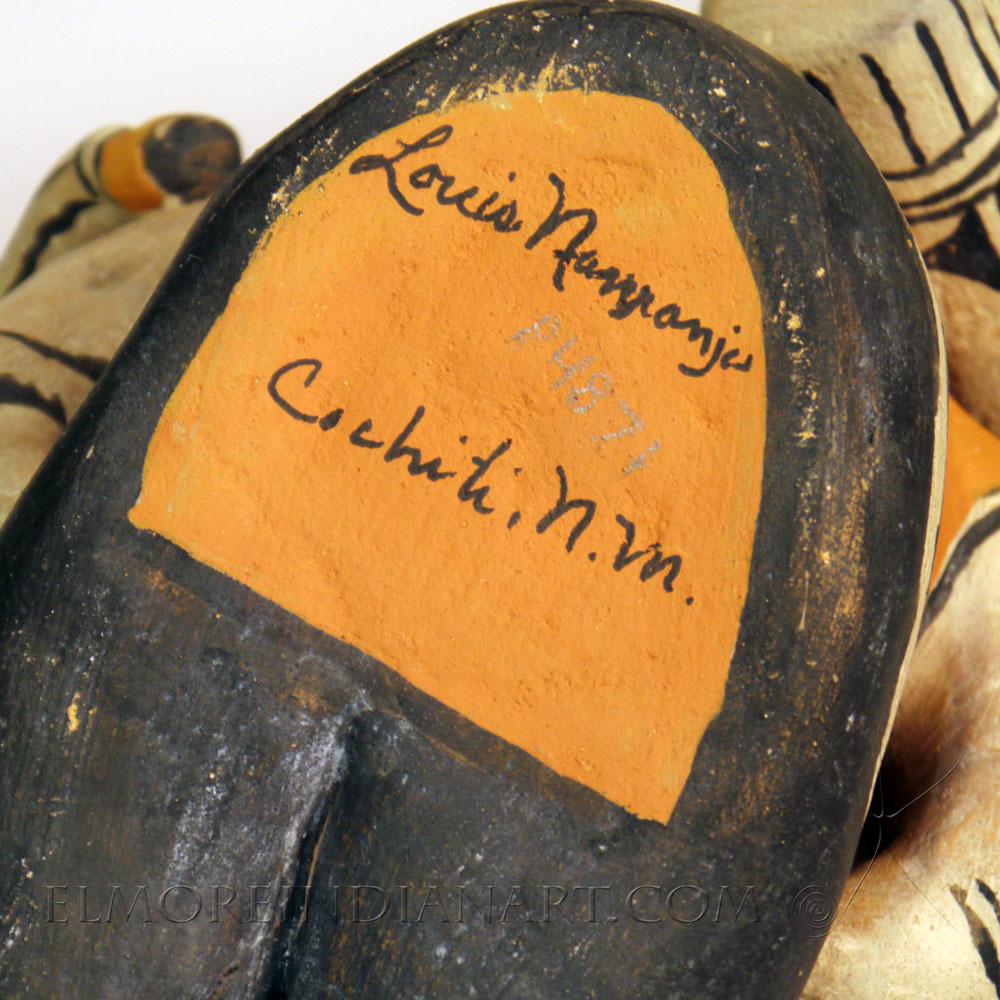 Louis Naranjo
P4871
Cochiti, N.M.
ELMOREINDIANART.COM